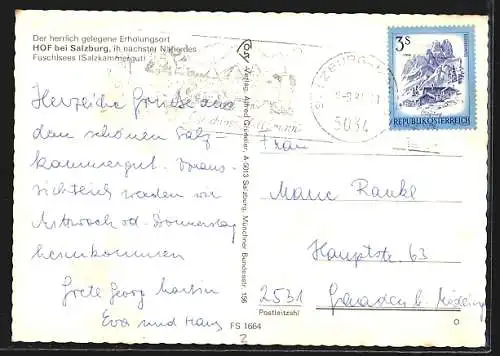 Der herrlich gelegene Erholungsort
HOF bei Salzburg, in nächster Nähe des
Fuschlsees (Salzkammergut)
Herzliche Grüße aus
dem schönen Salz-
kammergut. Voraus-
sichtlich werden wir
Mittwoch od. Donnerstag
heimkommen
Grete Georg Martin
Eva und Hans
FS 1664
2
Verlag: Alfred Gründler, A-5013 Salzburg, Münchner Bundesstr. 156
SALZBURG
5034
3S
REPUBLIK ÖSTERREICH
Frau
Hauptstr. 63
2531
Gaaden b. Mödling
Postleitzahl